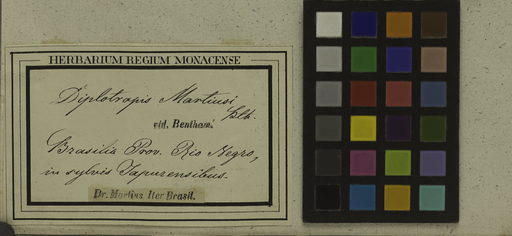 HERBARIUM REGIUM MONACENSE
Diplotropis Martiusi
Bth.
vid. Bentham.
Brasilia Prov. Rio Negro,
in sylvis Japurensibus.
Dr. Martius Iter Brasil.